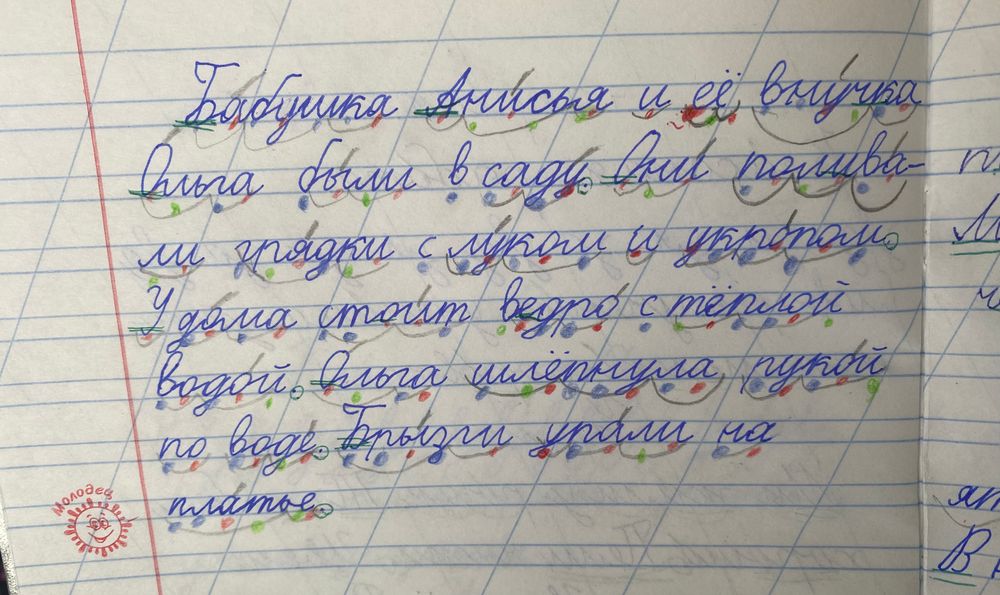 Бабушка Анисья и её внучка
Ольга были в саду. Они полива-
ли грядки с луком и укропом.
У дома стоит ведро с тёплой
водой. Ольга шлёпнула рукой
по воде. Брызги упали на
платье.
Молодец